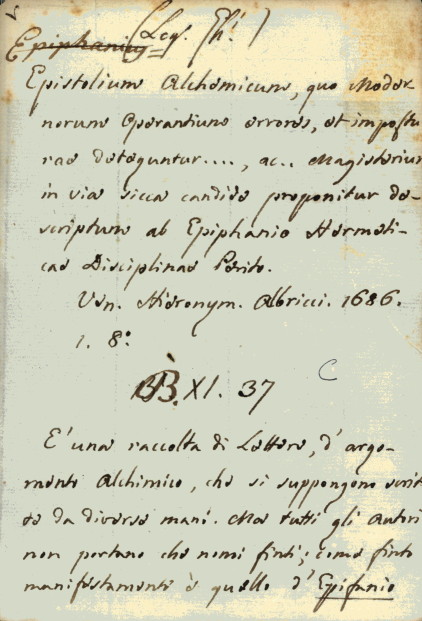 Epiphanius (Leg. Eh.)
Epistolium Alchemicum, quo Moder-
norum Operantium errores, et impostu
rae deteguntur...., ac.. Magisterium
in via sicca candide proponitur de-
scriptum ab Epiphanio Hermeti-
cae Disciplinae Perito.
Ven. Hieronym. Albrici. 1686.
1. 8.º
BB. XI. 37
E' una raccolta di Lettere, d'argo-
mento Alchimico, che si suppongono scrit
te da diverse mani. Ma tutti gli Autori
non portano che nomi finti; come finto
manifestamente è quello d'Epifanio